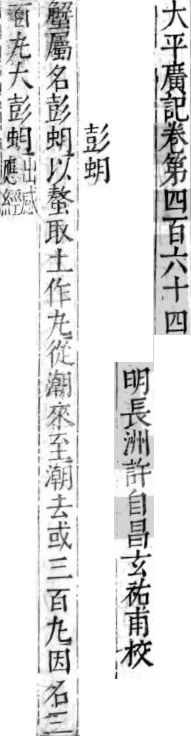 大平廣記卷第四百六十四
明長洲許自昌玄祐甫校
彭蚏
蟹屬名彭蚏以螯取土作九從潮來至潮去或三百九因名三
百九大彭蚏出感應經